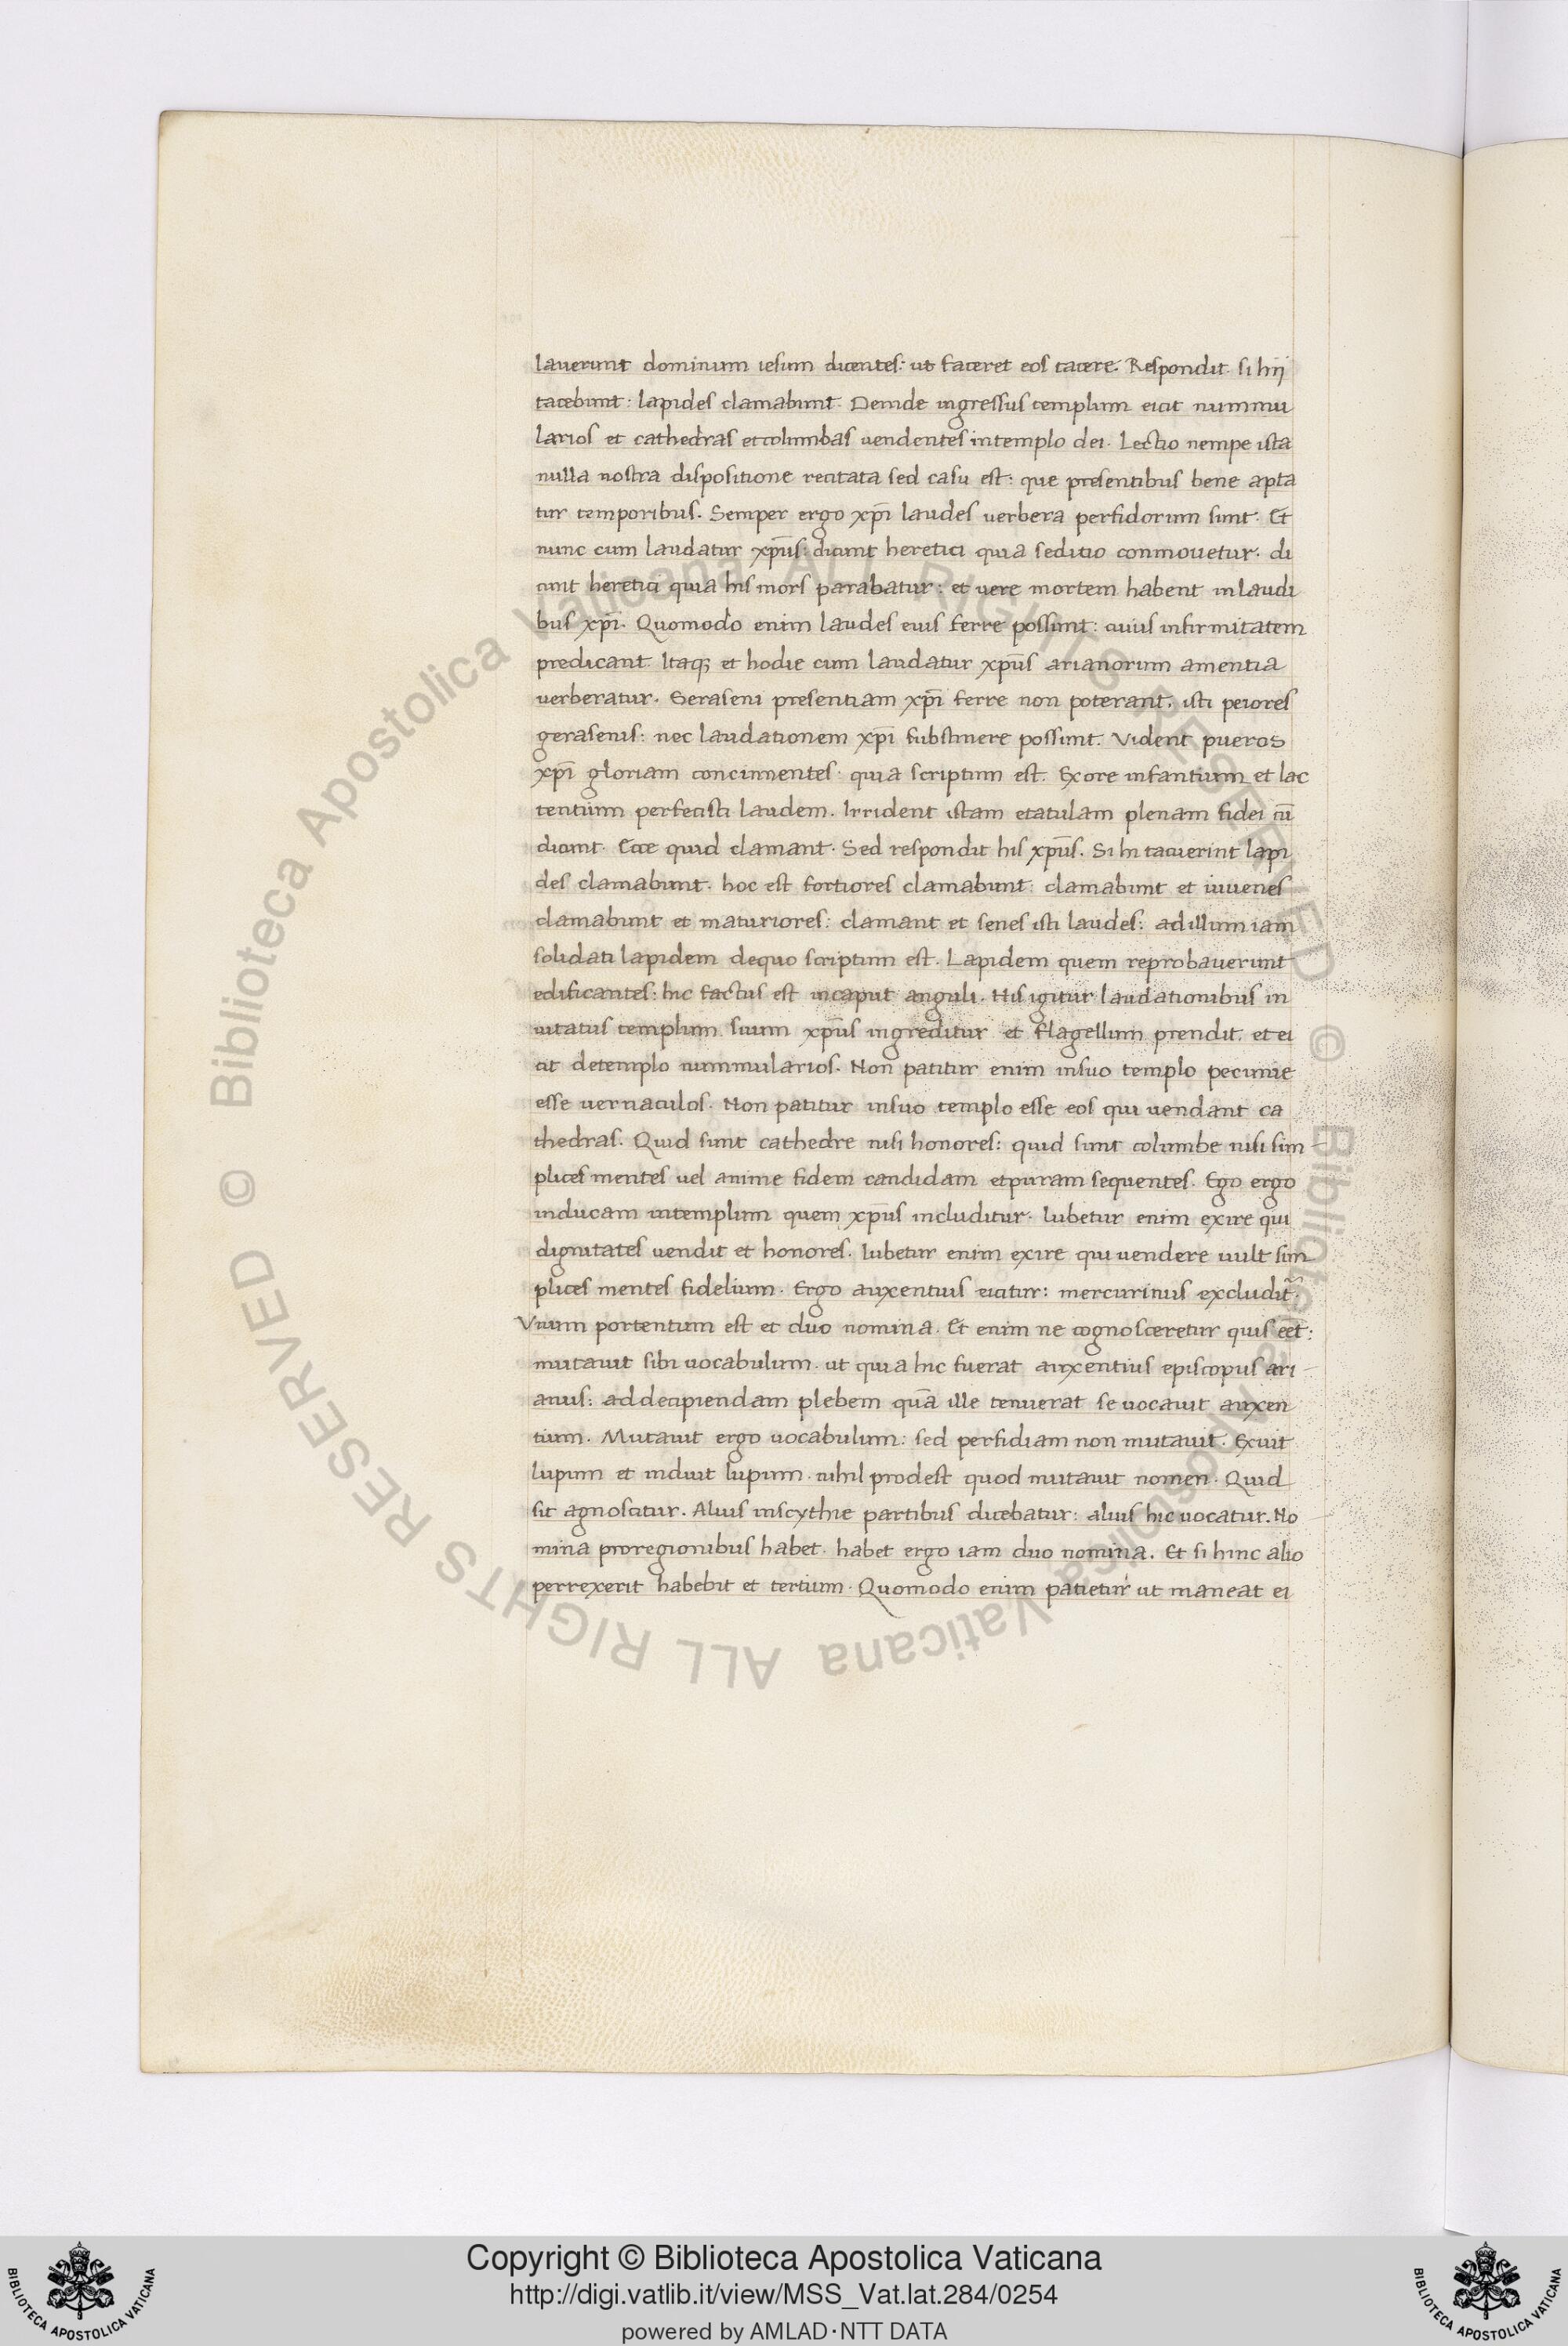 lauerunt dominum iesum dicentes: ut faceret eos tacere. Respondit. si hij
tacebunt: lapides clamabunt. Deinde ingressus templum eicit nummu
larios et cathedras et columbas uendentes in templo dei. Lectio nempe ista
nulla nostra dispositione recitata sed casu est: que presentibus bene apta
tur temporibus. Semper ergo xp̄i laudes uerbera perfidorum sunt. Et
nunc cum laudatur xp̄us: dicunt heretici quia seditio conmouetur. di
cunt heretici quia his mors parabatur: et uere mortem habent in laudi
bus xp̄i. Quomodo enim laudes eius ferre possunt: cuius infirmitatem
predicant. Itaq; et hodie cum laudatur xp̄us arianorum amentia
uerberatur. Geraseni presentiam xp̄i ferre non poterant. isti peiores
gerasenis: nec laudationem xp̄i substinere possunt. Vident pueros
xp̄i gloriam concinnentes: quia scriptum est. Ex ore infantium et lac
tentium perfecisti laudem. Irrident istam etatulam plenam fidei cū
dicunt. Ecce quid clamant. Sed respondit his xp̄us. Si hi tacuerint lapi
des clamabunt. hoc est fortiores clamabunt: clamabunt et iuuenes
clamabunt et maturiores: clamant et senes isti laudes: ad illum iam
solidati lapidem de quo scriptum est. Lapidem quem reprobauerunt
edificantes: hic factus est in caput anguli. His igitur laudationibus in
uitatus templum suum xp̄us ingreditur et flagellum prendit. et ei
cit de templo nummularios. Non patitur enim in suo templo pecunie
esse uernaculos. Non patitur in suo templo esse eos qui uendant ca
thedras. Quid sunt cathedre nisi honores: quid sunt columbe nisi sim
plices mentes uel anime fidem candidam et puram sequentes. Ego ergo
inducam in templum quem xp̄us includitur. Iubetur enim exire qui
dignitates uendit et honores. Iubetur enim exire qui uendere uult sim
plices mentes fidelium. Ergo auxentius eicitur: mercurinus excludit̃.
Vnum portentum est et duo nomina. Et enim ne cognosceretur quis eēt:
mutauit sibi uocabulum. ut quia hic fuerat auxentius episcopus ari
anus: ad decipiendam plebem quā ille tenuerat se uocauit auxen
tium. Mutauit ergo uocabulum: sed perfidiam non mutauit. Exuit
lupum et induit lupum. nihil prodest quod mutauit nomen. Quid
sit agnoscitur. Alius in scythie partibus dicebatur: alius hic uocatur. No
mina pro regionibus habet. habet ergo iam duo nomina. Et si hinc alio
perrexerit habebit et tertium. Quomodo enim patietur ut maneat ei
© Biblioteca Apostolica Vaticana ALL RIGHTS RESERVED © Biblioteca Apostolica Vaticana ALL RIGHTS RESERVED
Copyright © Biblioteca Apostolica Vaticana
http://digi.vatlib.it/view/MSS_Vat.lat.284/0254
powered by AMLAD·NTT DATA
BIBLIOTECA APOSTOLICA VATICANA
BIBLIOTECA APOSTOLICA VATICANA